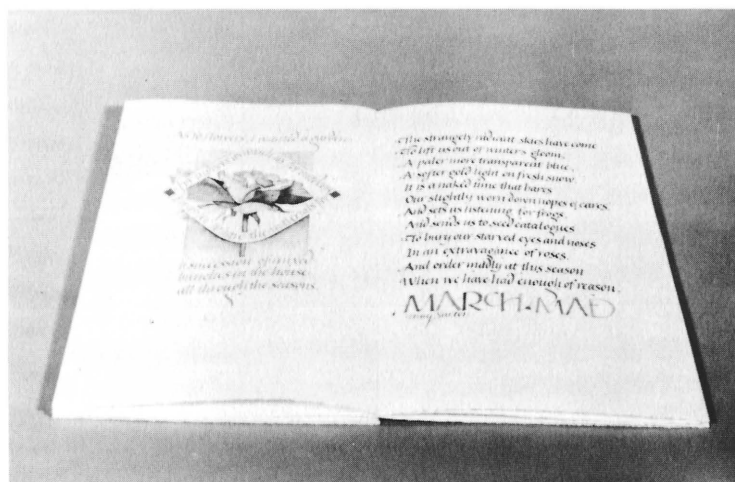 As to flowers, I wanted a garden
A succession of mixed
bunches in the house
all through the seasons.
The strangely radiant skies have come
To lift us out of winter's gloom,
A paler more transparent blue,
A softer gold light on fresh snow.
It is a naked time that bares
Our slightly worn down hopes & cares
And sets us listening for frogs,
And sends us to seed catalogues
To bury our starved eyes and noses
In an extravagance of roses.
And order madly at this season
When we have had enough of reason.
MARCH·MAD
may sarton